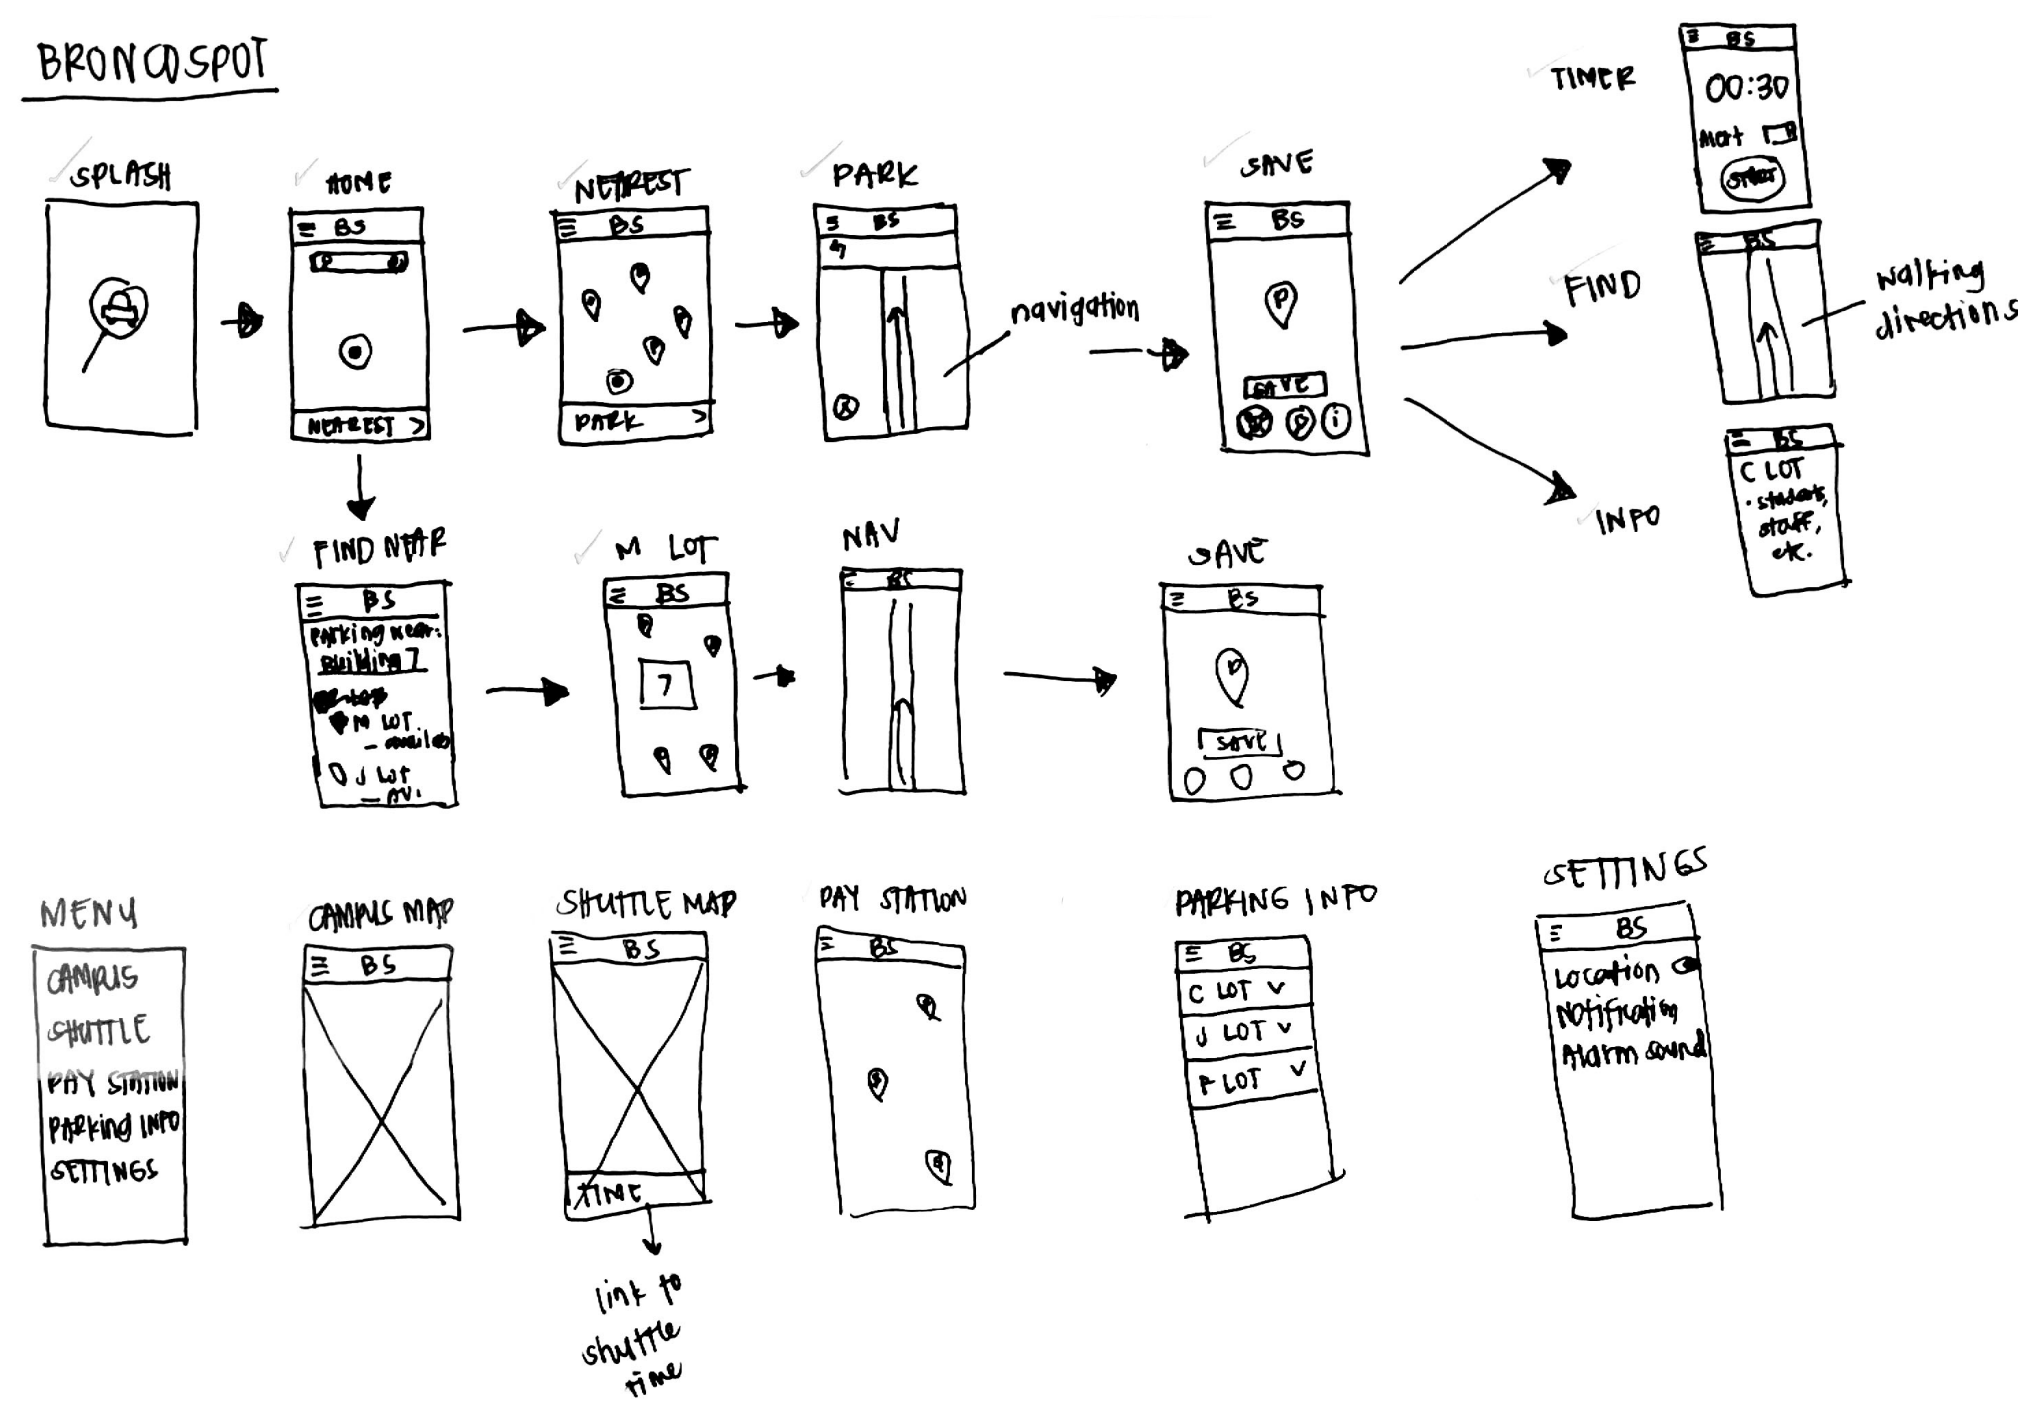 BRONCOSPOT
SPLASH
HOME
BS
NEAREST >
NEAREST
BS
PARK >
PARK
BS
navigation
SAVE
BS
P
SAVE
i
TIMER
BS
00:30
Alert
START
FIND
BS
walking
directions
INFO
BS
C LOT
• students,
staff,
etc.
FIND NEAR
BS
Parking near:
Building 7
M LOT
J LOT
– AV.
M LOT
BS
7
NAV
BS
SAVE
BS
P
SAVE
MENU
CAMPUS
SHUTTLE
PAY STATION
PARKing INFO
SETTINGS
CAMPUS MAP
BS
SHUTTLE MAP
BS
TIME
link to
shuttle
time
PAY STATION
BS
PARKING INFO
BS
C LOT v
J LOT v
F LOT v
SETTINGS
BS
Location
Notification
Alarm sound